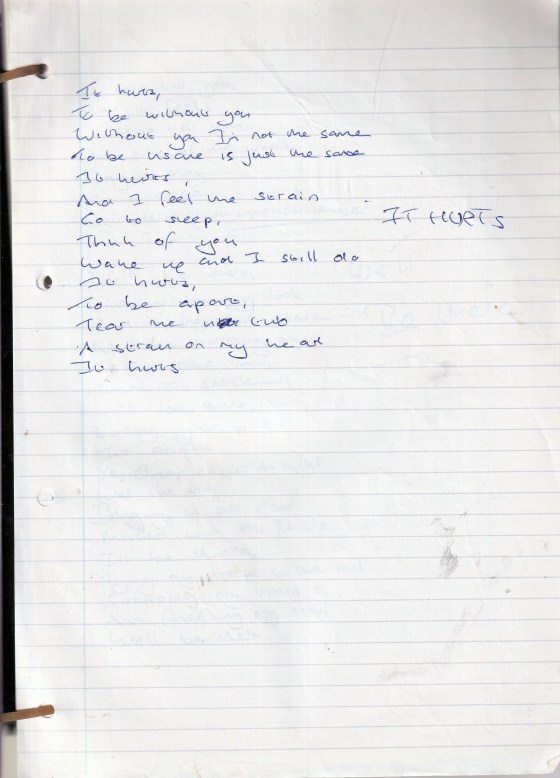 It hurts,
To be without you
Without you I'm not the same
To be insane is just the same
It hurts,
And I feel the strain
Go to sleep,
IT HURTS
Think of you
Wake up and I still do
It hurts,
To be apart,
Tear me two
A strain on my heart
It hurts